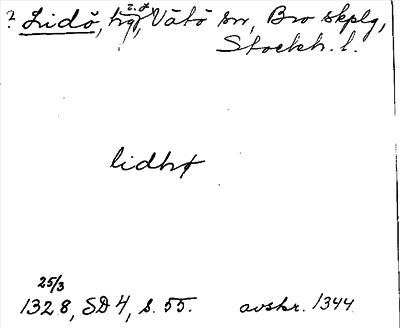 ? Lidö, hg, z. ö Vätö sn, Bro skplg,
Stockh. l.
lidhø
25/3
1328, SD 4, s. 55. avskr. 1344.